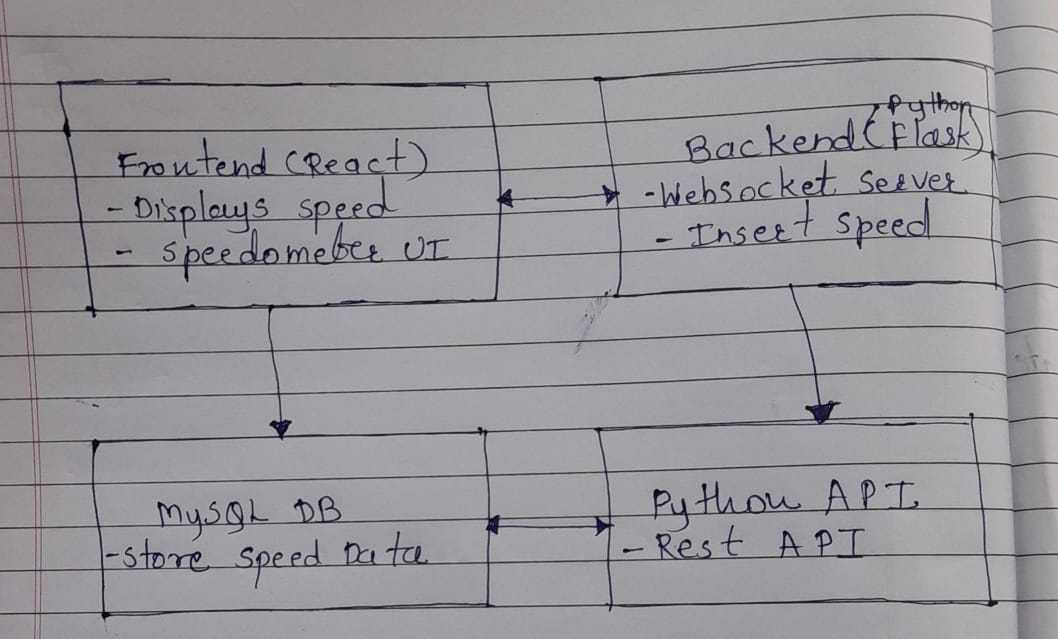 Frontend (React)
- Displays speed
- speedometer UI
Backend (Python Flask)
- Websocket server
- Insert speed
MySQL DB
- store speed Data
Python API
- Rest API